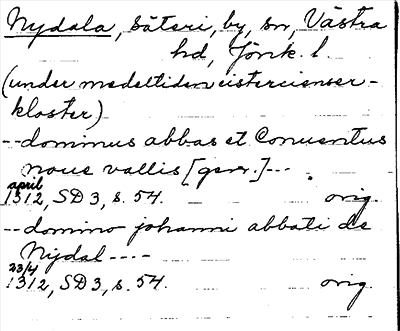 Nydala, säteri, by, sn, Västra
hd, Jönk. l.
(under medeltiden cistercienser-
kloster)
-- dominus abbas et Conuentus
noue vallis [gen.] ---.
april
1312, SD 3, s. 54. orig.
-- domino johanni abbati de
Nydal ----
23/4
1312, SD 3, s. 54. orig.